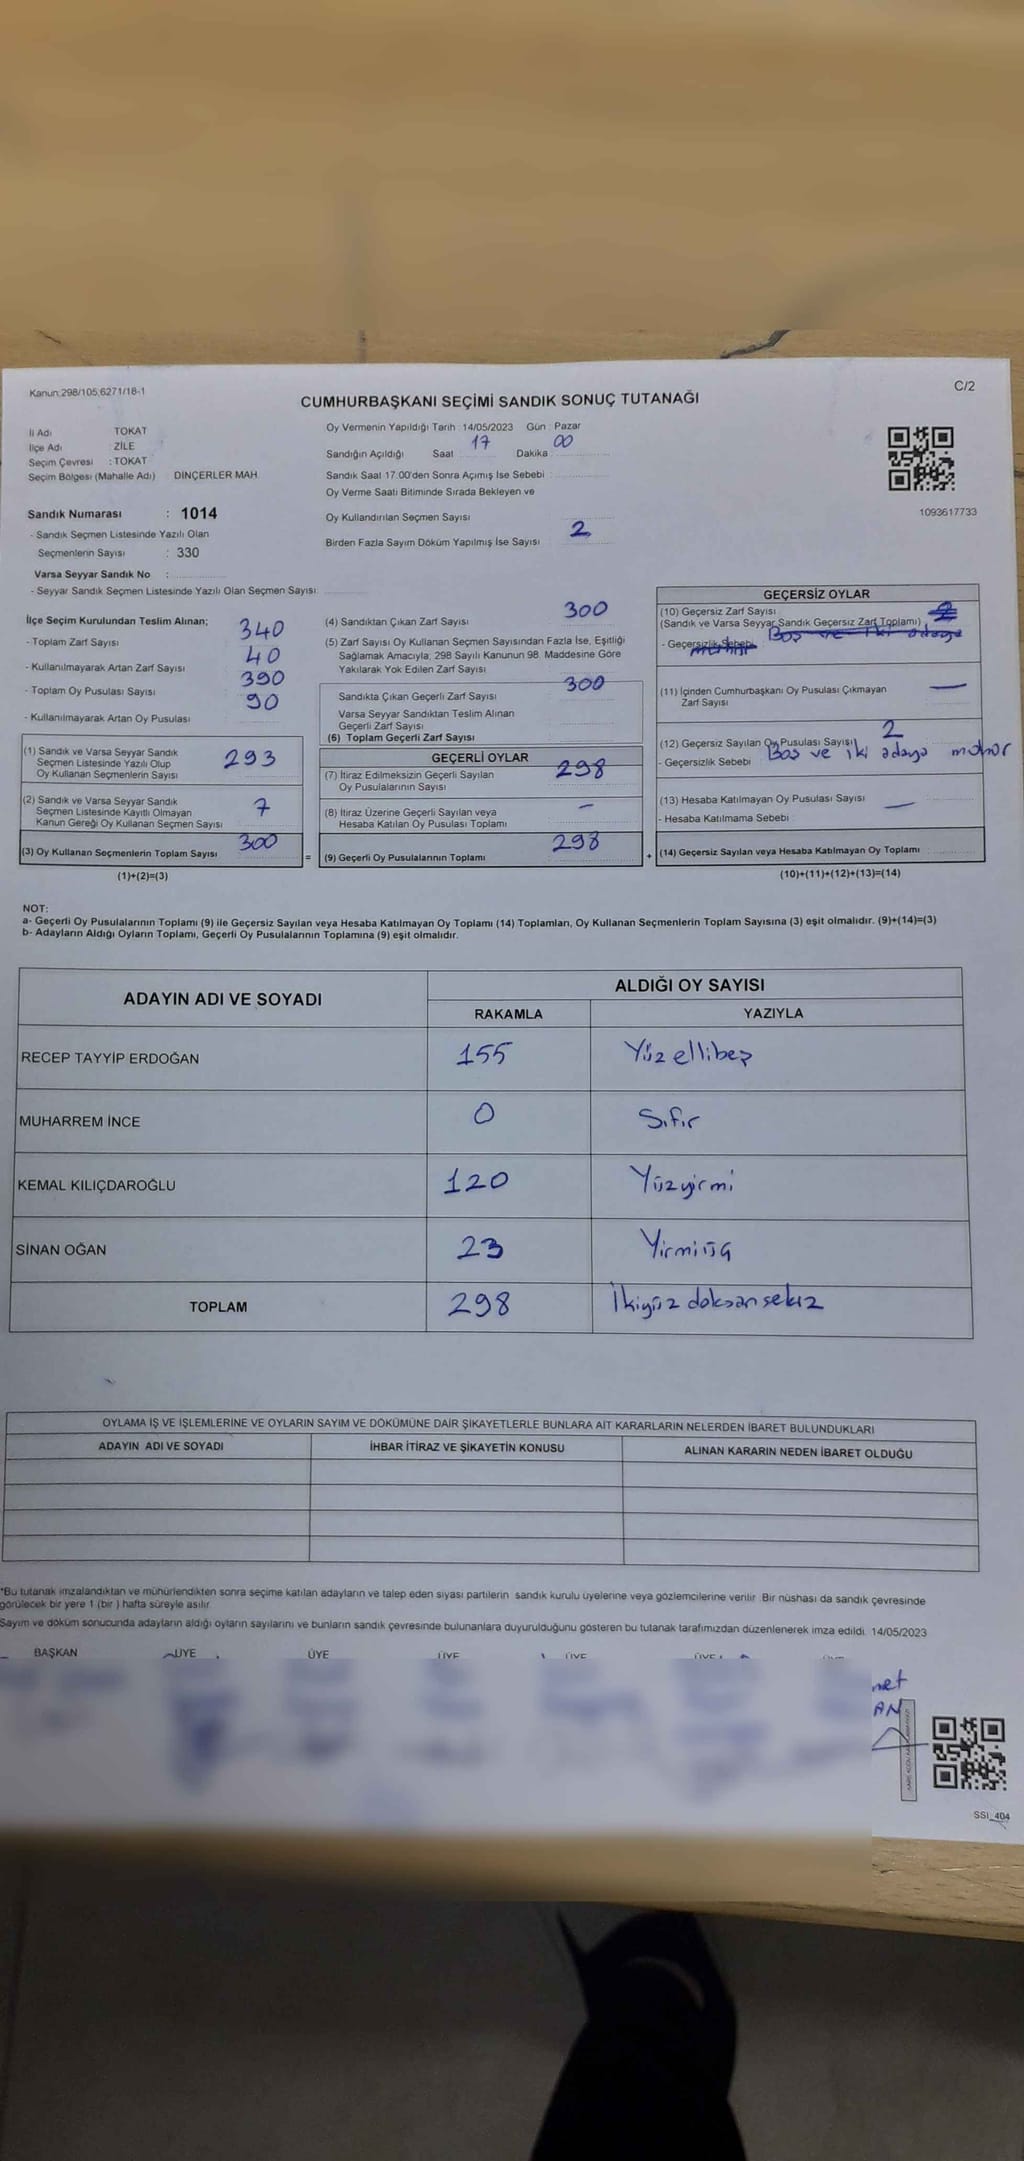 Kanun:298/105,6271/18-1
C/2
CUMHURBAŞKANI SEÇİMİ SANDIK SONUÇ TUTANAĞI
İl Adı TOKAT
İlçe Adı ZİLE
Seçim Çevresi : TOKAT
Seçim Bölgesi (Mahalle Adı) DİNÇERLER MAH
Sandık Numarası : 1014
- Sandık Seçmen Listesinde Yazılı Olan
Seçmenlerin Sayısı : 330
Varsa Seyyar Sandık No :
- Seyyar Sandık Seçmen Listesinde Yazılı Olan Seçmen Sayısı:
Oy Vermenin Yapıldığı Tarih : 14/05/2023 Gün : Pazar
Sandığın Açıldığı Saat 17 Dakika 00
Sandık Saat 17.00'den Sonra Açımış İse Sebebi :
Oy Verme Saati Bitiminde Sırada Bekleyen ve
Oy Kullandırılan Seçmen Sayısı
Birden Fazla Sayım Döküm Yapılmış İse Sayısı : 2
1093617733
İlçe Seçim Kurulundan Teslim Alınan;
- Toplam Zarf Sayısı 340
- Kullanılmayarak Artan Zarf Sayısı 40
- Toplam Oy Pusulası Sayısı 390
- Kullanılmayarak Artan Oy Pusulası 90
(1) Sandık ve Varsa Seyyar Sandık
Seçmen Listesinde Yazılı Olup
Oy Kullanan Seçmenlerin Sayısı 293
(2) Sandık ve Varsa Seyyar Sandık
Seçmen Listesinde Kayıtlı Olmayan
Kanun Gereği Oy Kullanan Seçmen Sayısı 7
(3) Oy Kullanan Seçmenlerin Toplam Sayısı 300
(1)+(2)=(3)
=
(4) Sandıktan Çıkan Zarf Sayısı 300
(5) Zarf Sayısı Oy Kullanan Seçmen Sayısından Fazla İse, Eşitliği
Sağlamak Amacıyla; 298 Sayılı Kanunun 98. Maddesine Göre
Yakılarak Yok Edilen Zarf Sayısı
Sandıkta Çıkan Geçerli Zarf Sayısı 300
Varsa Seyyar Sandıktan Teslim Alınan
Geçerli Zarf Sayısı
(6) Toplam Geçerli Zarf Sayısı
GEÇERLİ OYLAR
(7) İtiraz Edilmeksizin Geçerli Sayılan
Oy Pusulalarının Sayısı 298
(8) İtiraz Üzerine Geçerli Sayılan veya
Hesaba Katılan Oy Pusulası Toplamı -
(9) Geçerli Oy Pusulalarının Toplamı 298
+
GEÇERSİZ OYLAR
(10) Geçersiz Zarf Sayısı 2
(Sandık ve Varsa Seyyar Sandık Geçersiz Zarf Toplamı)
- Geçersizlik Sebebi Boş ve iki adaya
(11) İçinden Cumhurbaşkanı Oy Pusulası Çıkmayan
Zarf Sayısı —
(12) Geçersiz Sayılan Oy Pusulası Sayısı 2
- Geçersizlik Sebebi Boş ve iki adaya mühür
(13) Hesaba Katılmayan Oy Pusulası Sayısı —
- Hesaba Katılmama Sebebi
(14) Geçersiz Sayılan veya Hesaba Katılmayan Oy Toplamı
(10)+(11)+(12)+(13)=(14)
NOT:
a- Geçerli Oy Pusulalarının Toplamı (9) ile Geçersiz Sayılan veya Hesaba Katılmayan Oy Toplamı (14) Toplamları, Oy Kullanan Seçmenlerin Toplam Sayısına (3) eşit olmalıdır. (9)+(14)=(3)
b- Adayların Aldığı Oyların Toplamı, Geçerli Oy Pusulalarının Toplamına (9) eşit olmalıdır.
ADAYIN ADI VE SOYADI
ALDIĞI OY SAYISI
RAKAMLA YAZIYLA
RECEP TAYYİP ERDOĞAN 155 Yüzellibeş
MUHARREM İNCE 0 Sıfır
KEMAL KILIÇDAROĞLU 120 Yüzyirmi
SİNAN OĞAN 23 Yirmiüç
TOPLAM 298 İkiyüz doksansekiz
OYLAMA İŞ VE İŞLEMLERİNE VE OYLARIN SAYIM VE DÖKÜMÜNE DAİR ŞİKAYETLERLE BUNLARA AİT KARARLARIN NELERDEN İBARET BULUNDUKLARI
ADAYIN ADI VE SOYADI İHBAR İTİRAZ VE ŞİKAYETİN KONUSU ALINAN KARARIN NEDEN İBARET OLDUĞU
*Bu tutanak imzalandıktan ve mühürlendikten sonra seçime katılan adayların ve talep eden siyasi partilerin sandık kurulu üyelerine veya gözlemcilerine verilir. Bir nüshası da sandık çevresinde
görülecek bir yere 1 (bir ) hafta süreyle asılır.
Sayım ve döküm sonucunda adayların aldığı oyların sayılarını ve bunların sandık çevresinde bulunanlara duyurulduğunu gösteren bu tutanak tarafımızdan düzenlenerek imza edildi. 14/05/2023
BAŞKAN ÜYE ÜYE ÜYE ÜYE ÜYE
SSI_404